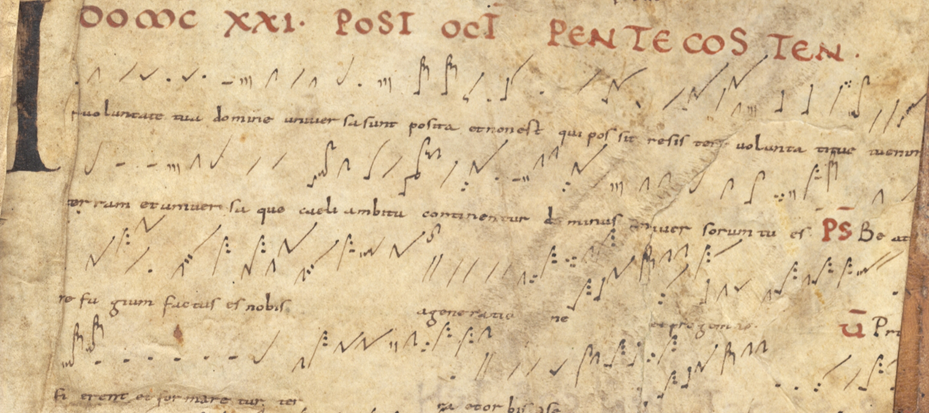 I
DOMC XXI. POST OCT PENTECOSTEN.
uoluntate tua domine uniuersa sunt posita et non est qui possit resistere uoluntati tue
terram et uniuersa que caeli ambitu continentur dominus uniuersorum tu es PS Be at
re fu gium factus es nobis a generatio ne et progenie. V Pri
fi erent et formare tur ter ra et orbis